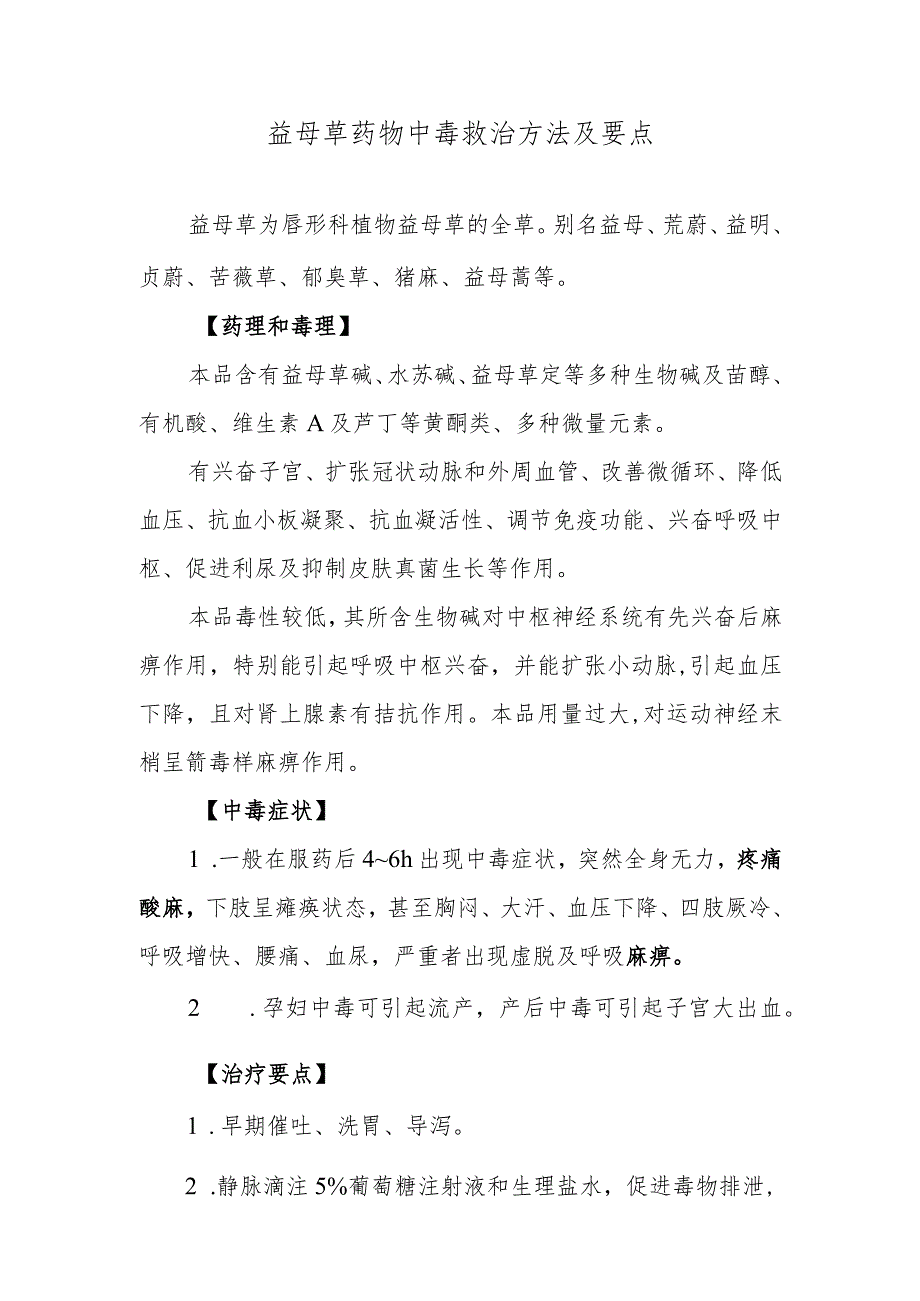 益母草药物中毒救治方法及要点
益母草为唇形科植物益母草的全草。别名益母、荒蔚、益明、
贞蔚、苦薇草、郁臭草、猪麻、益母蒿等。
【药理和毒理】
本品含有益母草碱、水苏碱、益母草定等多种生物碱及苗醇、
有机酸、维生素 A 及芦丁等黄酮类、多种微量元素。
有兴奋子宫、扩张冠状动脉和外周血管、改善微循环、降低
血压、抗血小板凝聚、抗血凝活性、调节免疫功能、兴奋呼吸中
枢、促进利尿及抑制皮肤真菌生长等作用。
本品毒性较低,其所含生物碱对中枢神经系统有先兴奋后麻
痹作用，特别能引起呼吸中枢兴奋，并能扩张小动脉,引起血压
下降，且对肾上腺素有拮抗作用。本品用量过大,对运动神经末
梢呈箭毒样麻痹作用。
【中毒症状】
1 .一般在服药后 4~6h 出现中毒症状，突然全身无力，疼痛
酸麻，下肢呈瘫痪状态，甚至胸闷、大汗、血压下降、四肢厥冷、
呼吸增快、腰痛、血尿，严重者出现虚脱及呼吸麻痹。
2 .孕妇中毒可引起流产，产后中毒可引起子宫大出血。
【治疗要点】
1 .早期催吐、洗胃、导泻。
2 .静脉滴注 5%葡萄糖注射液和生理盐水，促进毒物排泄,